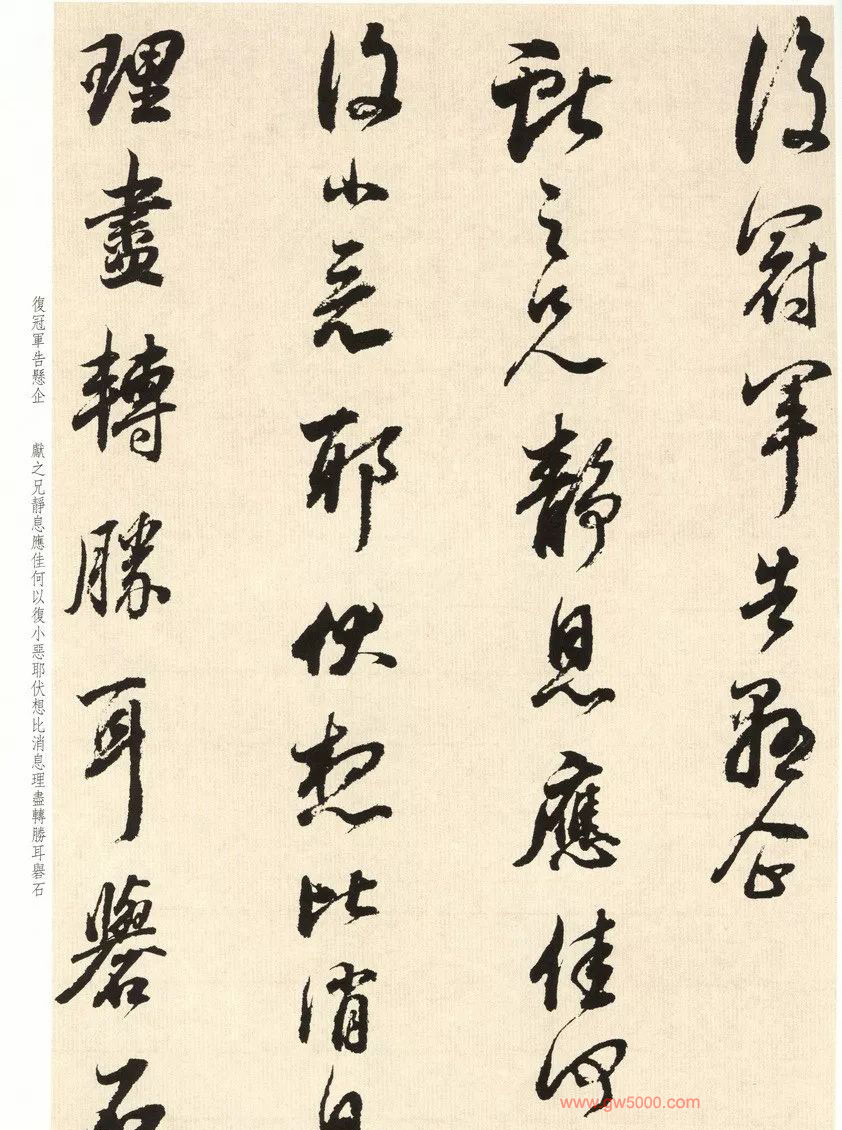 復冠軍告懸企
獻之兄靜息應佳何
復小惡耶伏想比消息
理盡轉勝耳礜石
復冠軍告懸企 獻之兄靜息應佳何以復小惡耶伏想比消息理盡轉勝耳礜石
www.gw5000.com